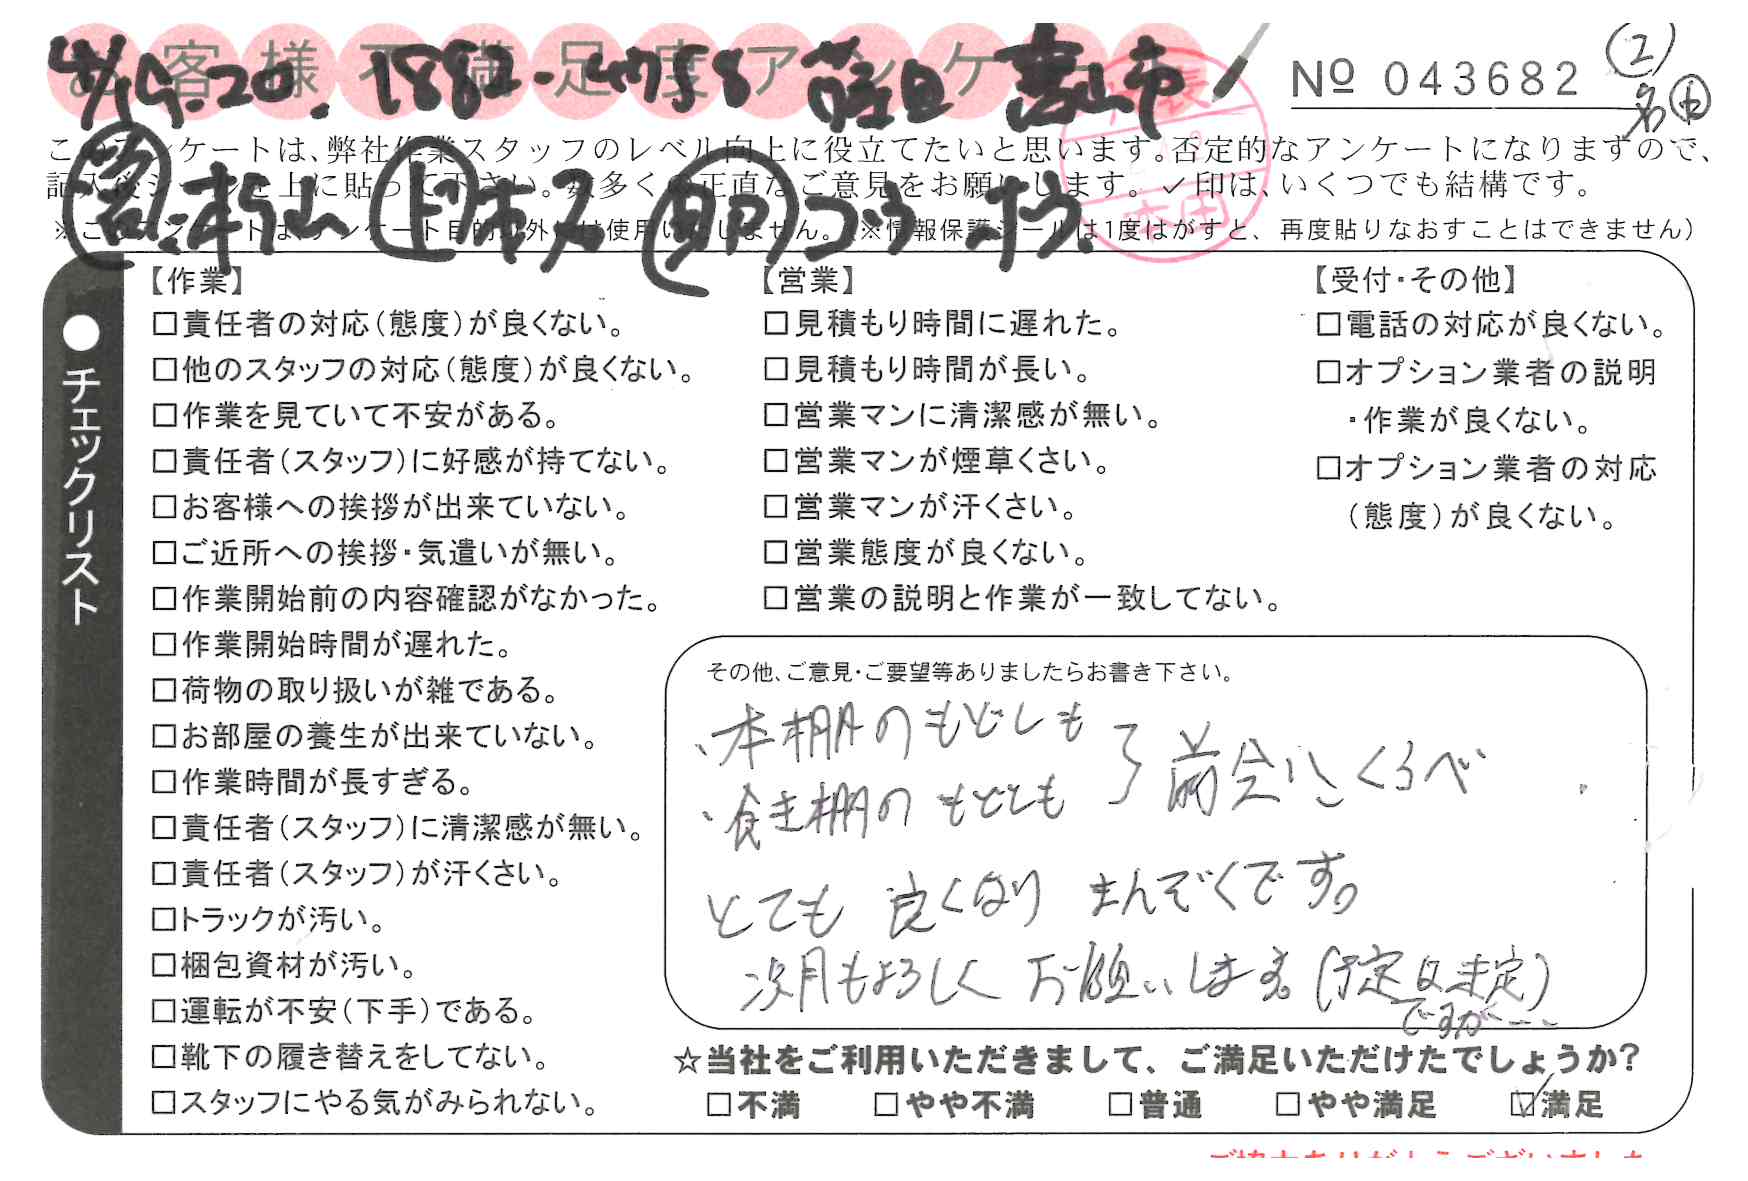 お客様不満足度アンケート
4/19.20. 1882-4758 富山市
Nº 043682
②
名
このアンケートは、弊社作業スタッフのレベル向上に役立てたいと思います。否定的なアンケートになりますので、
記入後シールを上に貼って下さい。数多くの正直なご意見をお願いします。✓印は、いくつでも結構です。
※このアンケートは、アンケート目的以外には使用いたしません。(※情報保護シールは1度はがすと、再度貼りなおすことはできません)
●チェックリスト
【作業】
□責任者の対応(態度)が良くない。
□他のスタッフの対応(態度)が良くない。
□作業を見ていて不安がある。
□責任者(スタッフ)に好感が持てない。
□お客様への挨拶が出来ていない。
□ご近所への挨拶・気遣いが無い。
□作業開始前の内容確認がなかった。
□作業開始時間が遅れた。
□荷物の取り扱いが雑である。
□お部屋の養生が出来ていない。
□作業時間が長すぎる。
□責任者(スタッフ)に清潔感が無い。
□責任者(スタッフ)が汗くさい。
□トラックが汚い。
□梱包資材が汚い。
□運転が不安(下手)である。
□靴下の履き替えをしてない。
□スタッフにやる気がみられない。
【営業】
□見積もり時間に遅れた。
□見積もり時間が長い。
□営業マンに清潔感が無い。
□営業マンが煙草くさい。
□営業マンが汗くさい。
□営業態度が良くない。
□営業の説明と作業が一致してない。
【受付・その他】
□電話の対応が良くない。
□オプション業者の説明
・作業が良くない。
□オプション業者の対応
(態度)が良くない。
その他、ご意見・ご要望等ありましたらお書き下さい。
、本棚のもどしも
、食き棚のもどしも
前会にくらべ
とても良くなりまんぞくです。
次月もよろしくお願いします。(予定は未定)
ですが…
☆当社をご利用いただきまして、ご満足いただけたでしょうか?
□不満 □やや不満 □普通 □やや満足 ☑満足
ご協力ありがとうございました